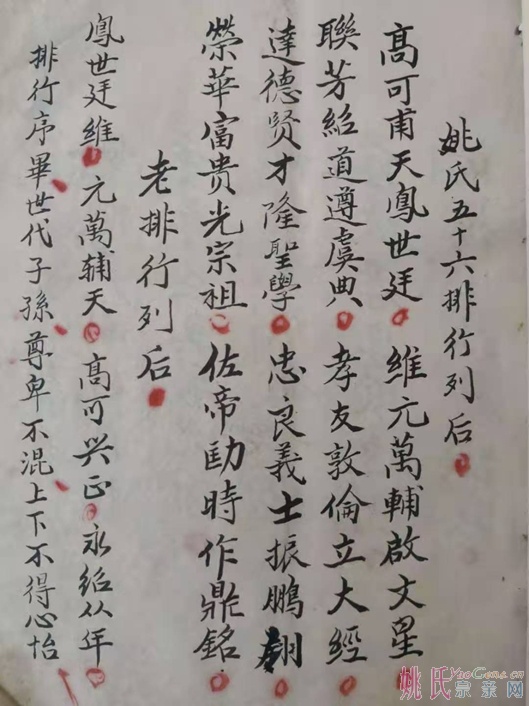 姚氏五十六排行列后
高可甫天鳳世廷 維元萬輔啟文星
聯芳紹道遵虞典 孝友敦倫立大經
達德贤才隆聖學 忠良義士振鵬翮
榮華富贵光宗祖 佐帝勛時作鼎銘
老排行列后
鳳世廷維 元萬辅天 高可兴正 永绍从年
排行序畢世代子孫尊卑不混上下不得心怡
姚氏宗亲网
YaoGens.cn